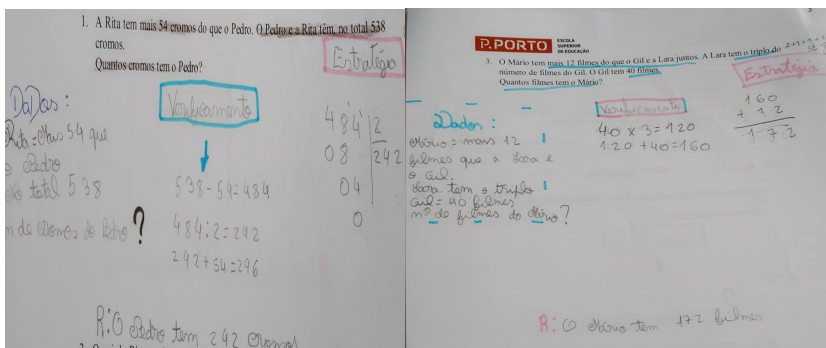 1. A Rita tem mais 54 cromos do que o Pedro. O Pedro e a Rita têm, no total 538
cromos.
Quantos cromos tem o Pedro?
Estratégia
Dados:
Rita = Mais 54 que
o Pedro
No total 538
n de cromos do Pedro?
538 - 54 = 484
484 : 2 = 242
242 + 54 = 296
484 2
08 242
04
0
R: O Pedro tem 242 cromos
P.PORTO
ESCOLA
SUPERIOR
DE EDUCAÇÃO
3. O Mário tem mais 12 filmes do que o Gil e a Lara juntos. A Lara tem o triplo do
número de filmes do Gil. O Gil tem 40 filmes.
Quantos filmes tem o Mário?
Estratégia
Dados:
Mário = mais 12
filmes que a Lara e
o Gil.
Lara tem o triplo
Gil = 40 filmes
nº de filmes do Mário?
40 x 3 = 120
120 + 40 = 160
160
+ 12
172
R: O Mário tem 172 filmes